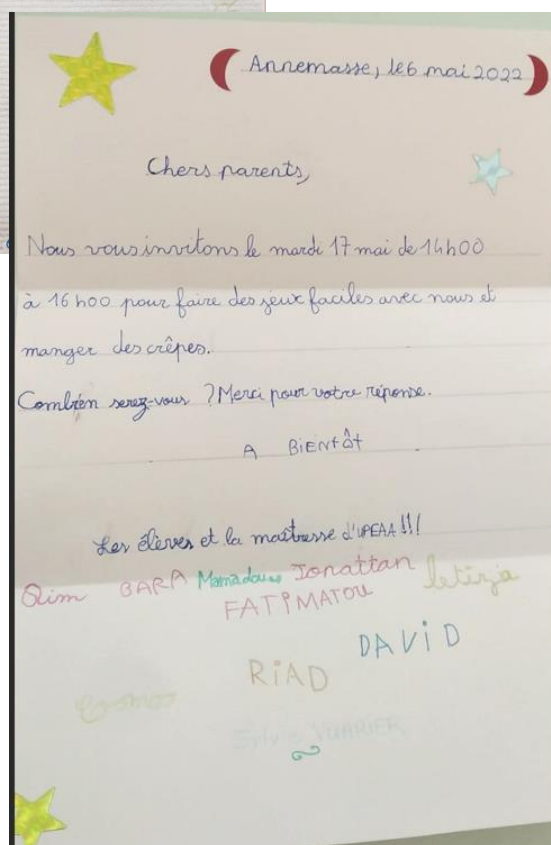 Annemasse, le 6 mai 2022
Chers parents,
Nous vous invitons le mardi 17 mai de 14h00
à 16h00 pour faire des jeux faciles avec nous et
manger des crêpes.
Combien serez-vous ? Merci pour votre réponse.
A BiENtôt
Les élèves et la maîtresse d'UPEAA !!!
BARA Mamadou Jonattan letizia
FATIMATOU
DAViD
RiAD
VUARIER